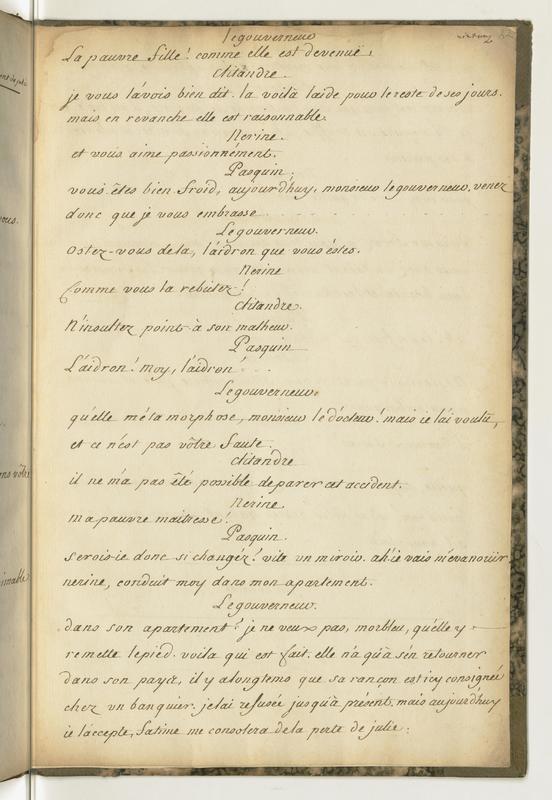 Le gouverneur
La pauvre fille! comme elle est devenuë,
Clitandre.
je vous l'avois bien dit. la voilà laide pour le reste de ses jours.
mais en revanche elle est raisonnable.
Nerine.
et vous aime passionnément.
Pasquin.
vous êtes bien froid, aujourd'huy, monsieur le gouverneur, venez
donc que je vous embrasse
Le gouverneur.
Ostez-vous de la, laidron que vous êstes.
Nerine
Comme vous la rebutez!
Clitandre.
N'insultez point à son malheur.
Pasquin
Laidron! moy, laidron!
Le gouverneur.
quelle métamorphose, monsieur le docteur! mais je l'ai voulu,
et ce n'est pas vôtre faute.
Clitandre
il ne m'a pas été possible de parer cet accident.
Nerine.
ma pauvre maitresse!
Pasquin.
serois-je donc si changée! vite un miroir. ah! je vais m'evanoüir
nerine, conduit moy dans mon apartement.
Le gouverneur.
dans son apartement? je ne veux pas, morbleu, qu'elle y
remette le pied. voila qui est fait. elle n'a qu'à s'en retourner
dans son payis, il y a longtems que sa rançon est icy consignée
chez un banquier. je l'ai refusée jusqu'à présent. mais aujourd'huy
je l'accepte, fatime me consolera de la perte de julie.
ous.
ons vôtre
imable